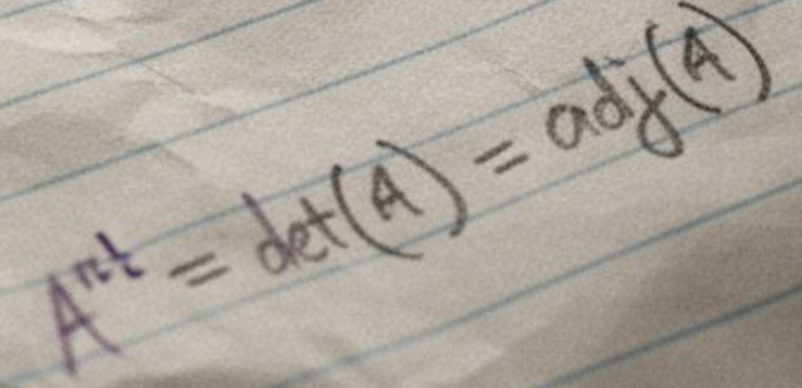 A = det(A) = adj(A)